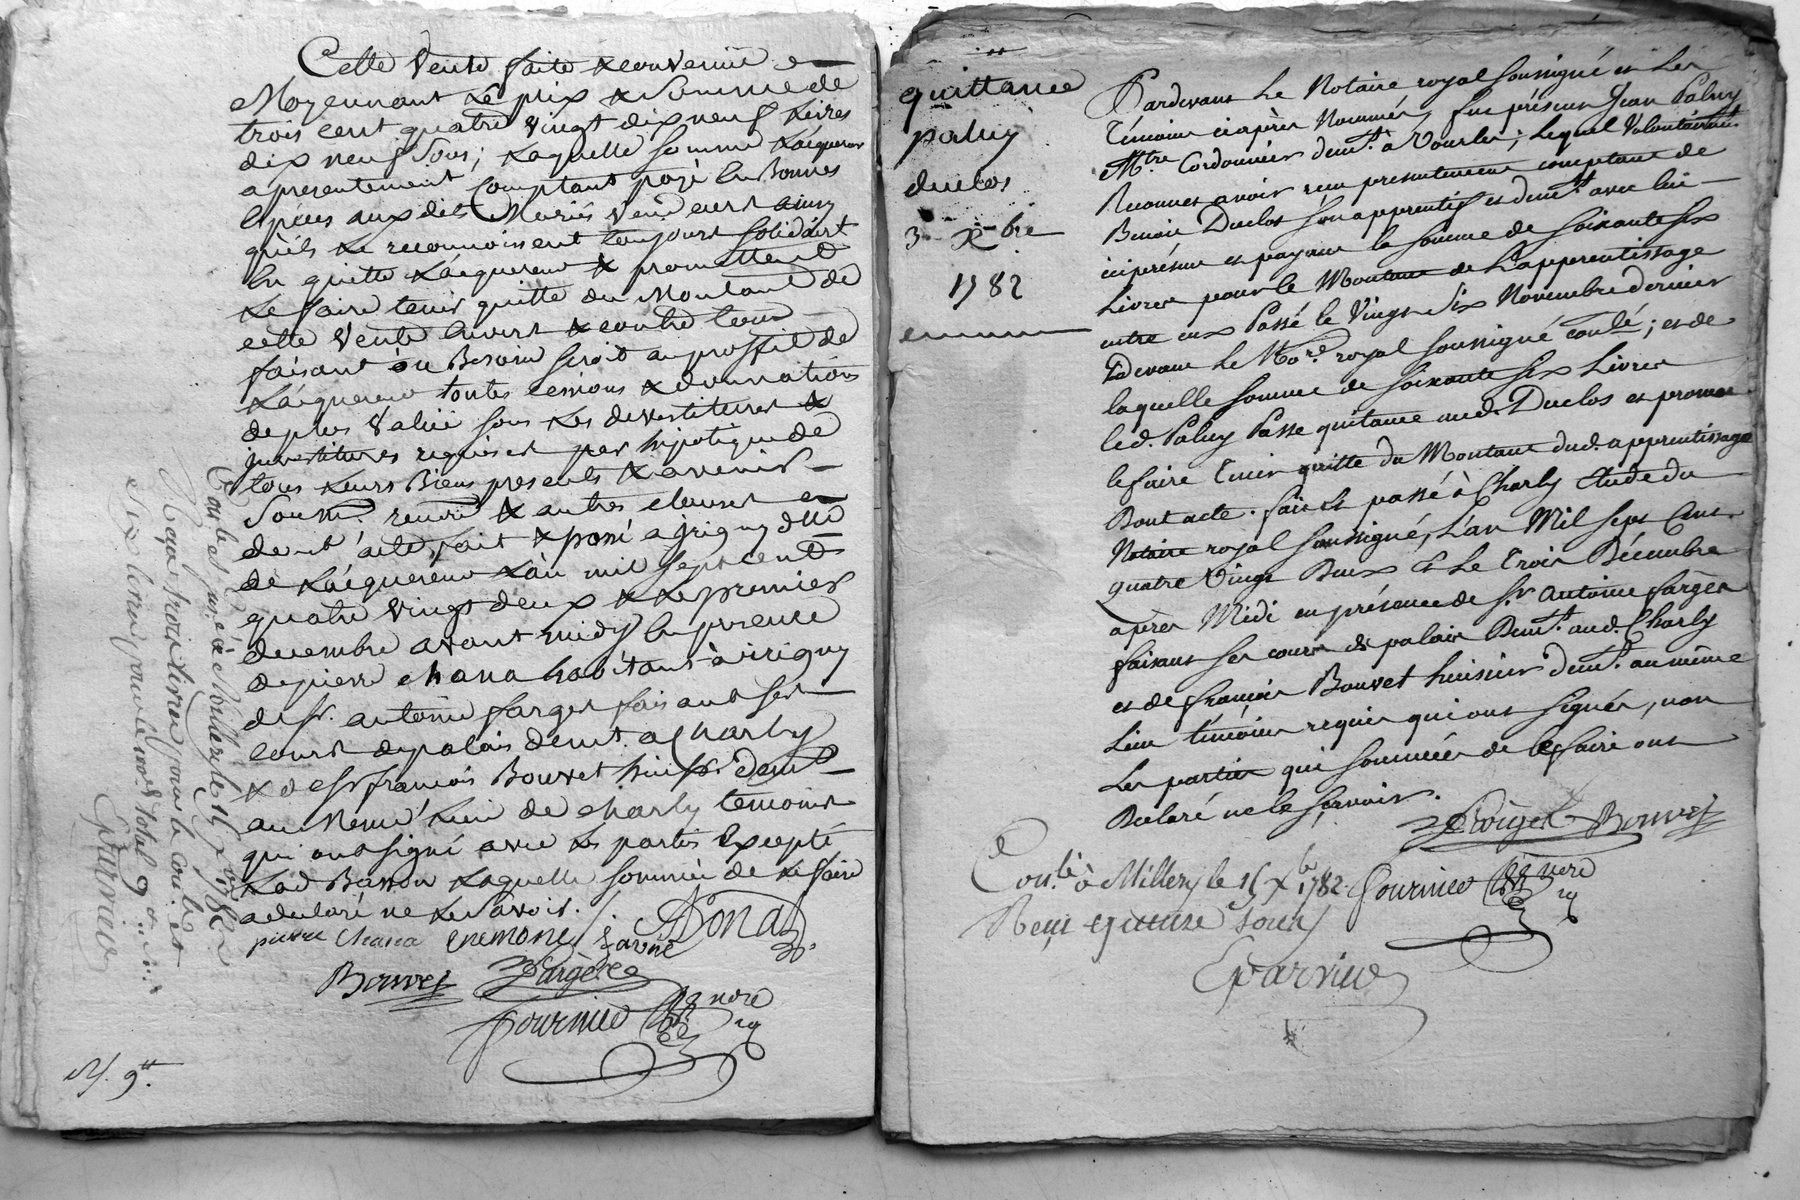 Cette vente faite & convenue
Moyennant le prix & somme de
trois cent quatre vingt dix neuf livres
dix neuf sous; laquelle somme l'acquereur
a presentement comptant payé en Bonnes
Espèces auxdits Mariés vendeurs ainsy
qu'ils le reconnoissent toujours solidairt
En quitte l'acquereur & promettent
le faire tenir quitte du Montant de
cette vente Envers & contre tous
faisant où Besoin seroit au proffit de
l'acquereur toutes cessions & donnations
de plus valüe sous les devestitures &
investitures requises par hipotique de
tous leurs Biens presents & avenir
Soum. renon & autres clauses
dont acte, fait & passé a jrigny
de l'acquereur l'an mil sept cent
quatre vingt deux & le premier
decembre avant midy En presence
de pierre chana habitant à irigny
de sr. antoine farges faisant ses
cours de palais demt. a Charly
& de sr françois Bouvet huissr. demt.
au Meme Lieu de charly temoins
qui ont signé avec les parties Excepté
Lad Basson Laquelle sommée de le faire
a declaré ne le savoir.
pierre chana
Bouvet fargès
fournier nore
rg
9tt.
Eparvier
quittance
paluy
duclos
3 Xbre
1782
Pardevant Le Notaire royal soussigné et Les
Témoins ciaprès Nommés, fut présent Jean Paluy
Mtre Cordonnier demt. à Vourles; Lequel Volontairemt.
Reconnet avoir reçu presentement comptant de
Benoit Duclos son apprentif et demt. avec lui
ici présent et payant la somme de soixante six
Livres pour le Montant de L'apprentissage
entre eux Passé le Vingt six Novembre dernier
Pdevant Le Nore. royal soussigné conlé; et de
laquelle somme de soixante six Livres
led. Paluy Passe quittance aud. Duclos et promet
le faire Tenir quitte du Montant dud. apprentissage
Dont acte. fait et passé à Charly Etude du
Notaire royal soussigné, L'an Mil sept Cent
quatre Vingt Deux et Le Trois Décembre
après Midi en présence de Sr Antoine fargès
faisant ses cours de palais Demt. aud. Charly
et de françois Bouvet huissier demt. au même
Lieu témoins requis qui ont Signés, non
Les parties qui sommées de le faire ont
Declaré ne le sçavoir.
fargès Bouvet
Conlé à Millery le 15 Xbre 1782 fournier nore
rg
Reçu quinze sous
Eparvier